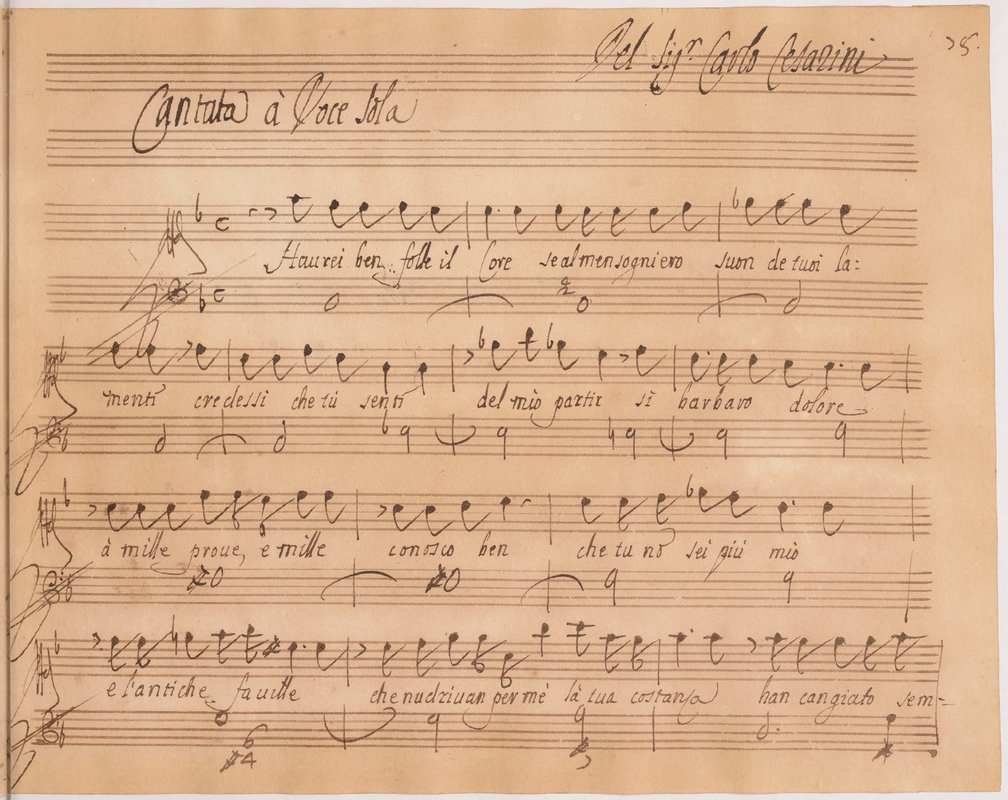 Del Sigr Carlo Cesarini
Cantata à Voce sola
Haurei ben folle il Core se al mensogniero suon de tuoi la:
menti credessi che tù senti del mio partir sì barbaro dolore
à mille proue, e mille conosco ben che tu nò sei più mio
e l'antiche fauille che nudriuan per mè là tua costanza han cangiato sem=
6
4